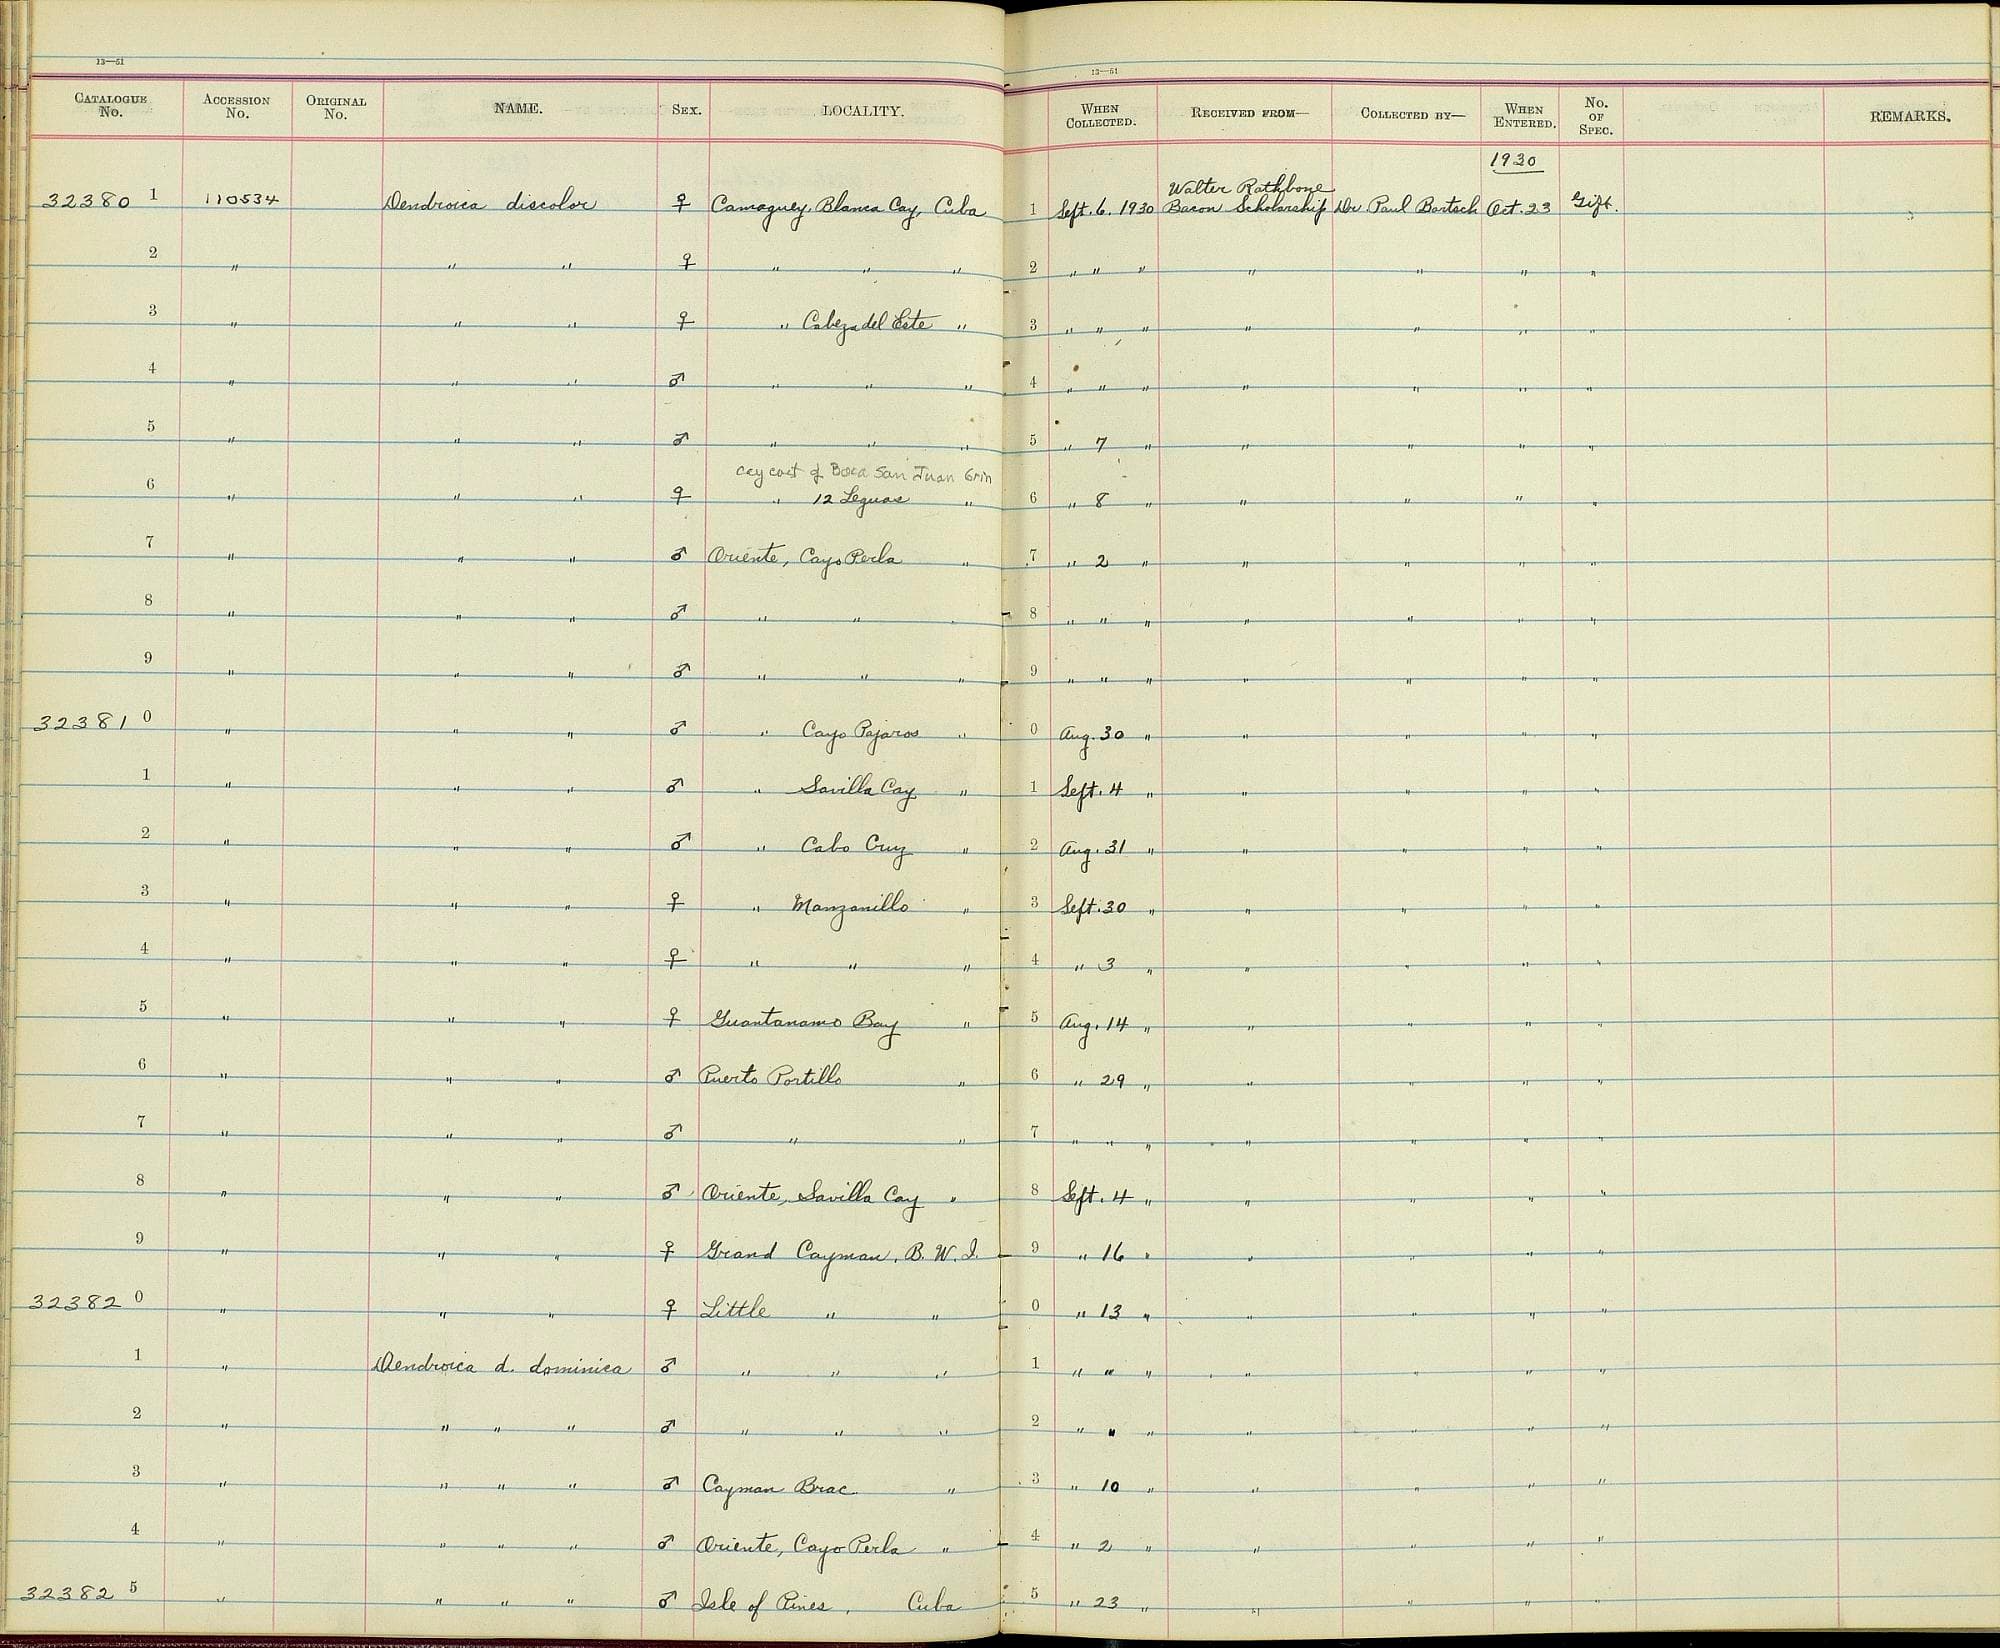 13—51
13—51
CATALOGUE No. ACCESSION No. ORIGINAL No. NAME. SEX. LOCALITY. WHEN COLLECTED. RECEIVED FROM— COLLECTED BY— WHEN ENTERED. No. OF SPEC. REMARKS.
1930
Walter Rathbone
32380 1 110534 Dendroica discolor ♀ Camaguey, Blanca Cay, Cuba 1 Sept. 6. 1930 Bacon Scholarship Dr Paul Bartsch Oct. 23 Gift.
2 " " " ♀ " " " 2 " " " " " " "
3 " " " ♀ " Cabeza del Este " 3 " " " " " " "
4 " " " ♂ " " " 4 " " " " " " "
5 " " " ♂ " " " 5 " 7 " " " " "
cay east of Boca San Juan Grin
6 " " " ♀ " 12 Leguas " 6 " 8 " " " " "
7 " " " ♂ Oriente, Cayo Perla " 7 " 2 " " " " "
8 " " " ♂ " " " 8 " " " " " " "
9 " " " ♂ " " " 9 " " " " " " "
32381 0 " " " ♂ " Cayo Pajaros " 0 Aug. 30 " " " " "
1 " " " ♂ " Savilla Cay " 1 Sept. 4 " " " " "
2 " " " ♂ " Cabo Cruz " 2 Aug. 31 " " " " "
3 " " " ♀ " Manzanillo " 3 Sept. 30 " " " " "
4 " " " ♀ " " " 4 " 3 " " " " "
5 " " " ♀ Guantanamo Bay " 5 Aug. 14 " " " " "
6 " " " ♂ Puerto Portillo " 6 " 29 " " " " "
7 " " " ♂ " " 7 " " " " " " "
8 " " " ♂ Oriente, Savilla Cay " 8 Sept. 4 " " " " "
9 " " " ♀ Grand Cayman, B. W. I. 9 " 16 " " " " "
32382 0 " " " ♀ Little " " 0 " 13 " " " " "
1 " Dendroica d. dominica ♂ " " " 1 " " " " " " "
2 " " " " ♂ " " " 2 " " " " " " "
3 " " " " ♂ Cayman Brac " 3 " 10 " " " " "
4 " " " " ♂ Oriente, Cayo Perla " 4 " 2 " " " " "
32382 5 " " " " ♂ Isle of Pines, Cuba 5 " 23 " " " " "